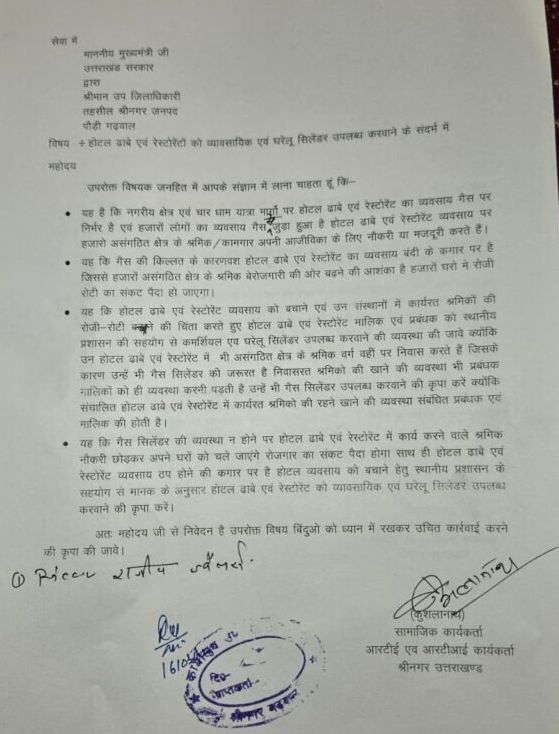 सेवा में
माननीय मुख्यमंत्री जी
उत्तराखंड सरकार
द्वारा
श्रीमान उप जिलाधिकारी
तहसील श्रीनगर जनपद
पौड़ी गढ़वाल
विषय ÷ होटल ढाबे एवं रेस्टोरेंटों को व्यावसायिक एवं घरेलू सिलेंडर उपलब्ध करवाने के संदर्भ में
महोदय
उपरोक्त विषयक जनहित में आपके संज्ञान में लाना चाहता हूं कि–
• यह है कि नगरीय क्षेत्र एवं चार धाम यात्रा मार्गो पर होटल ढाबे एवं रेस्टोरेंट का व्यवसाय गैस पर
निर्भर है एवं हजारों लोगों का व्यवसाय गैस से जुड़ा हुआ है होटल ढाबे एवं रेस्टोरेंट व्यवसाय पर
हजारो असंगठित क्षेत्र के श्रमिक/कामगार अपनी आजीविका के लिए नौकरी या मजदूरी करते हैं।
• यह कि गैस की किल्लत के कारणवश होटल ढाबे एवं रेस्टोरेंट का व्यवसाय बंदी के कगार पर है
जिससे हजारों असंगठित क्षेत्र के श्रमिक बेरोजगारी की ओर बढने की आशंका है हजारों घरो मे रोजी
रोटी का संकट पैदा हो जाएगा।
• यह कि होटल ढाबे एवं रेस्टोरेंट व्यवसाय को बचाने एवं उन संस्थानों में कार्यरत श्रमिकों की
रोजी–रोटी की चिंता करते हुए होटल ढाबे एवं रेस्टोरेंट मालिक एवं प्रबंधक को स्थानीय
प्रशासन की सहयोग से कमर्शियल एवं घरेलू सिलेंडर उपलब्ध करवाने की व्यवस्था की जावे क्योंकि
उन होटल ढाबे एवं रेस्टोरेंट में भी असंगठित क्षेत्र के श्रमिक वर्ग वहीं पर निवास करते हैं जिसके
कारण उन्हें भी गैस सिलेंडर की जरूरत है निवासरत श्रमिको की खाने की व्यवस्था भी प्रबंधक
मालिकों को ही व्यवस्था करनी पड़ती है उन्हें भी गैस सिलेंडर उपलब्ध करवाने की कृपा करें क्योंकि
संचालित होटल ढाबे एवं रेस्टोरेंट में कार्यरत श्रमिको की रहने खाने की व्यवस्था संबंधित प्रबंधक एवं
मालिक की होती है।
• यह कि गैस सिलेंडर की व्यवस्था न होने पर होटल ढाबे एवं रेस्टोरेंट में कार्य करने वाले श्रमिक
नौकरी छोड़कर अपने घरों को चले जाएंगे रोजगार का संकट पैदा होगा साथ ही होटल ढाबे एवं
रेस्टोरेंट व्यवसाय ठप होने की कगार पर है होटल व्यवसाय को बचाने हेतु स्थानीय प्रशासन के
सहयोग से मानक के अनुसार होटल ढाबे एवं रेस्टोरेंट को व्यावसायिक एवं घरेलू सिलेंडर उपलब्ध
करवाने की कृपा करें।
अतः महोदय जी से निवेदन है उपरोक्त विषय बिंदुओ को ध्यान में रखकर उचित कार्रवाई करने
की कृपा की जावे।
①
(कुशलानाथ)
सामाजिक कार्यकर्ता
आरटीई एव आरटीआई कार्यकर्ता
श्रीनगर उत्तराखण्ड
श्रीनगर गढ़वाल